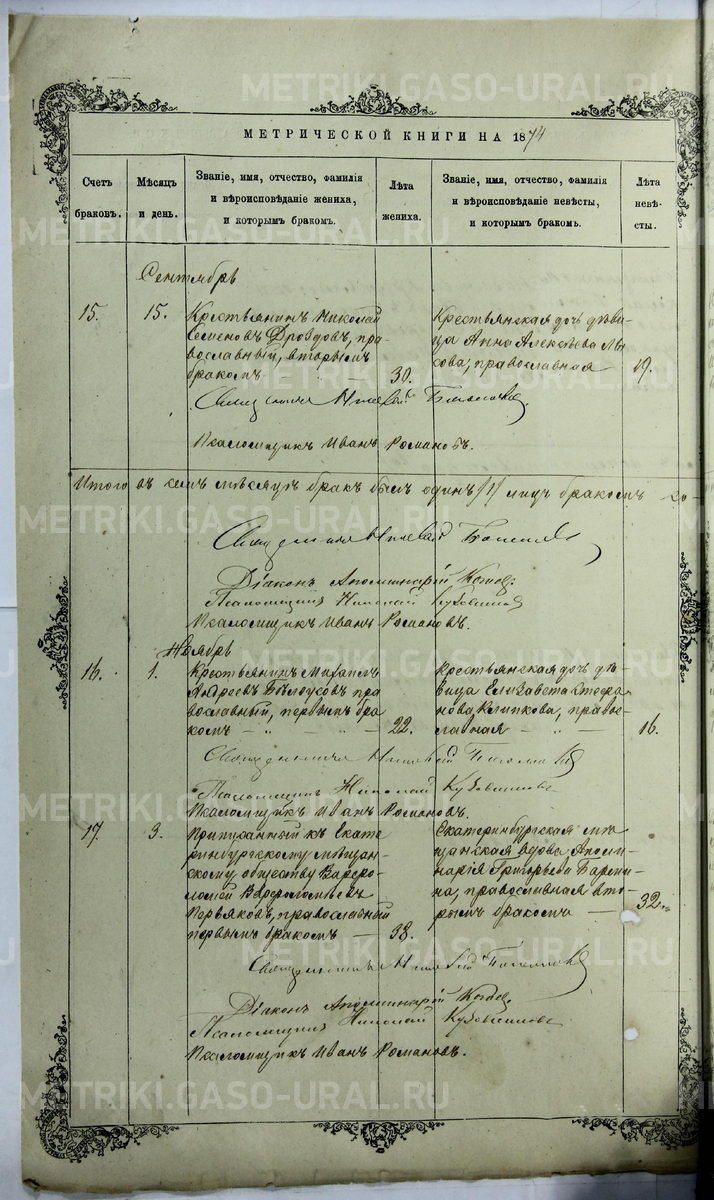 МЕТРИЧЕСКОЙ КНИГИ НА 1874
Счетъ браковъ.
Мѣсяцъ и день.
Званіе, имя, отчество, фамилія и вѣроисповѣданіе жениха, и которымъ бракомъ.
Лѣта жениха.
Званіе, имя, отчество, фамилія и вѣроисповѣданіе невѣсты, и которымъ бракомъ.
Лѣта невѣсты.
Сентябрь
15.
15.
Крестьянинъ Николай
Семеновъ Дроздовъ, пра
вославный, вторымъ
бракомъ
30.
Крестьянская дочь дѣви-
ца Анна Алексѣева
православная
19.
Священникъ
Псаломщикъ Иванъ Романовъ.
Итого въ семъ мѣсяцѣ бракъ былъ одинъ /1/ лицъ бракомъ
Священникъ
Діаконъ Аполлинарій
Псаломщикъ Николай
Псаломщикъ Иванъ Романовъ.
Ноябрь
16.
1.
Крестьянинъ Михаилъ
Андреевъ Бѣлоусовъ пра
вославный, первымъ бра
комъ
22.
Крестьянская дочь дѣ-
вица Елизавета Стефа
нова, правос-
лавная
16.
Священникъ
Псаломщикъ Николай
Псаломщикъ Иванъ Романовъ.
17.
3.
Приписанный къ Екате
ринбургскому мѣщан-
скому обществу Варфо-
ломей Варфоломѣевъ
Первяковъ, православный
первымъ бракомъ
38.
Екатеринбургская мѣ
щанская вдова Аполли
нарія Григорьева
православная вто-
рымъ бракомъ
32.
Священникъ
Діаконъ Аполлинарій
Псаломщикъ Николай
Псаломщикъ Иванъ Романовъ.
METRIKI.GASO-URAL.RU